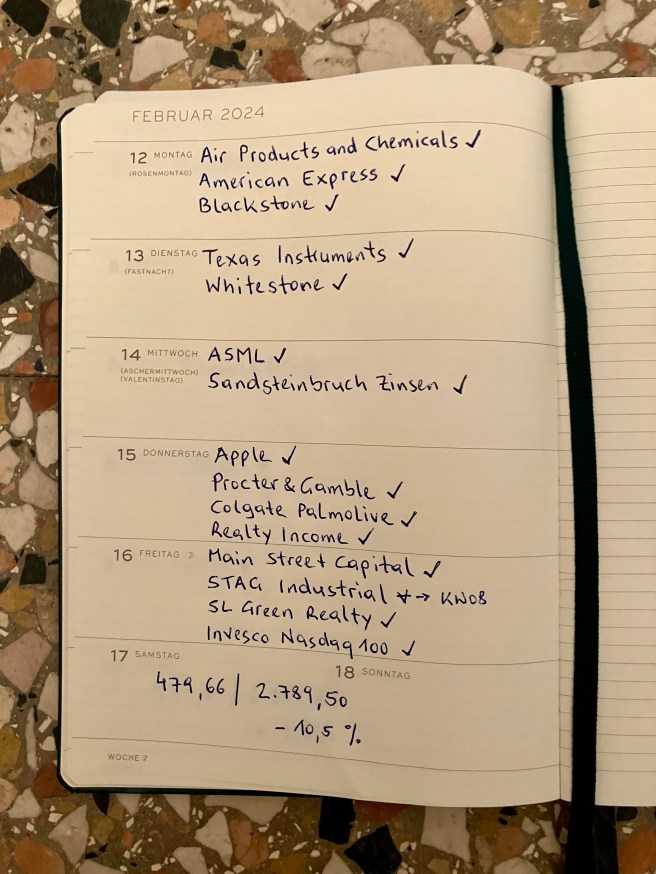 FEBRUAR 2024
12 MONTAG Air Products and Chemicals ✓
(ROSENMONTAG) American Express ✓
Blackstone ✓
13 DIENSTAG Texas Instruments ✓
(FASTNACHT) Whitestone ✓
14 MITTWOCH ASML ✓
(ASCHERMITTWOCH)
(VALENTINSTAG) Sandsteinbruch Zinsen ✓
15 DONNERSTAG Apple ✓
Procter & Gamble ✓
Colgate Palmolive ✓
Realty Income ✓
16 FREITAG ☽ Main Street Capital ✓
STAG Industrial → KW08
SL Green Realty ✓
Invesco Nasdaq 100 ✓
17 SAMSTAG
18 SONNTAG
479,66 | 2.789,50
- 10,5 %
WOCHE 7